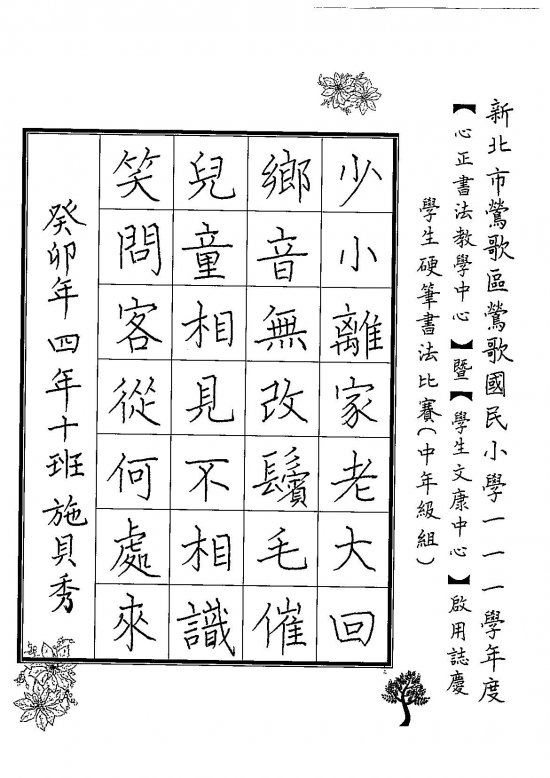 新北市鶯歌區鶯歌國民小學一一一學年度
【心正書法教學中心】暨【學生文康中心】啟用誌慶
學生硬筆書法比賽(中年級組)
少小離家老大回
鄉音無改鬢毛催
兒童相見不相識
笑問客從何處來
癸卯年四年十班施貝秀